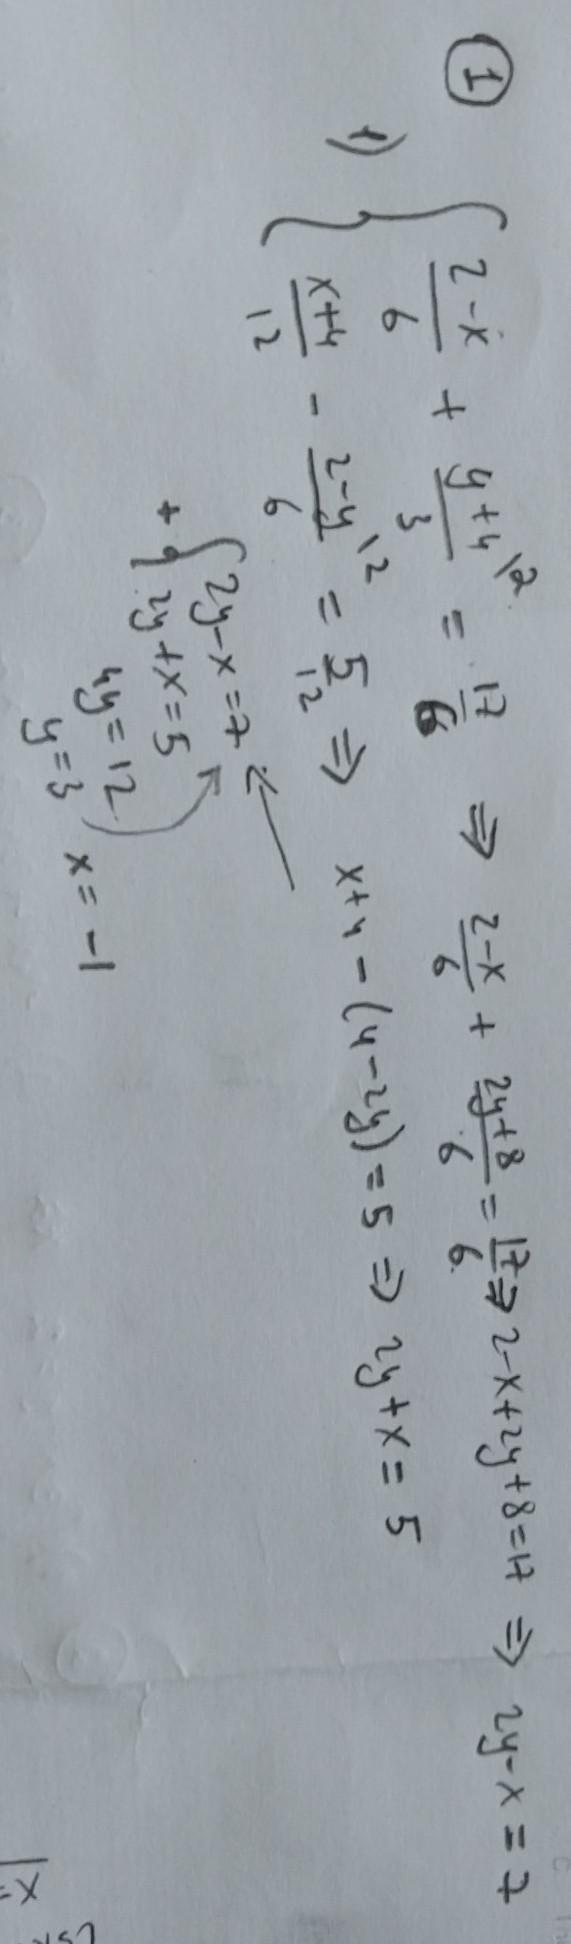 ①
1) { (2-x)/6 + (y+4)/3 \2 = 17/6 ⇒ (2-x)/6 + (2y+8)/6 = 17/6 ⇒ 2-x+2y+8=17 ⇒ 2y-x=7
(x+4)/12 - (2-y)/6 \2 = 5/12 ⇒ x+4-(4-2y)=5 ⇒ 2y+x=5
+ { 2y-x=7 ←
2y+x=5
4y=12
y=3 x=-1